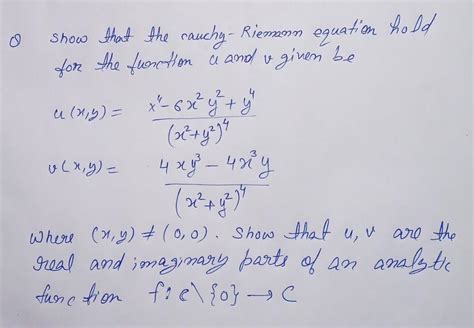 Q show that the cauchy-Riemann equation hold
for the function u and v given be
u(x,y) = x⁴-6x²y²+y⁴ / (x²+y²)⁴
v(x,y) = 4xy³-4x³y / (x²+y²)⁴
where (x,y) ≠ (0,0). show that u,v are the
real and imaginary parts of an analytic
function f: C\{0} → C